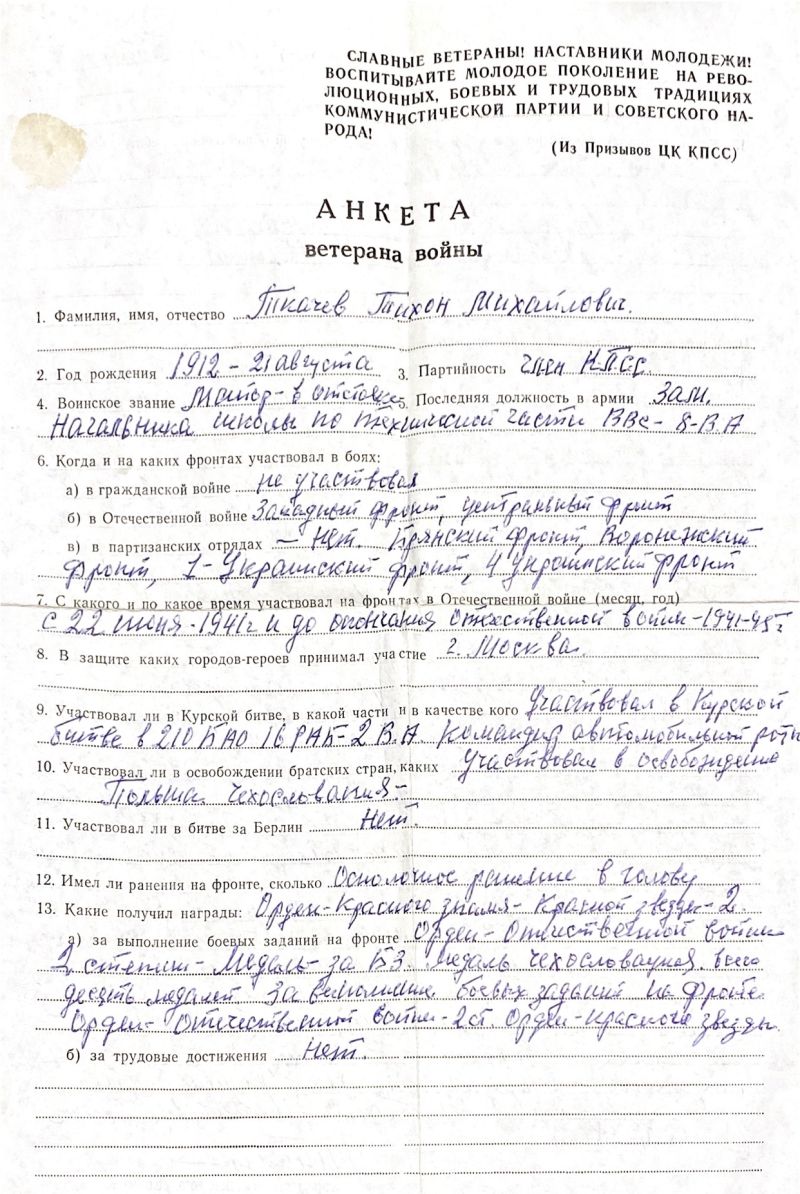 СЛАВНЫЕ ВЕТЕРАНЫ! НАСТАВНИКИ МОЛОДЕЖИ!
ВОСПИТЫВАЙТЕ МОЛОДОЕ ПОКОЛЕНИЕ НА РЕВО-
ЛЮЦИОННЫХ, БОЕВЫХ И ТРУДОВЫХ ТРАДИЦИЯХ
КОММУНИСТИЧЕСКОЙ ПАРТИИ И СОВЕТСКОГО НА-
РОДА!
(Из Призывов ЦК КПСС)
АНКЕТА
ветерана войны
1. Фамилия, имя, отчество Ткачев Тихон Михайлович.
2. Год рождения 1912 - 21 августа 3. Партийность член КПСС.
4. Воинское звание Майор - в отставке 5. Последняя должность в армии Зам.
Начальника школы по технической части ВВС - 8-В.А
6. Когда и на каких фронтах участвовал в боях:
а) в гражданской войне не участвовал
б) в Отечественной войне Западный фронт, центральный фронт
в) в партизанских отрядах — Нет. Брянский фронт, Воронежский
фронт, 1-Украинский фронт, 4 Украинский фронт
7. С какого и по какое время участвовал на фронтах в Отечественной войне (месяц, год)
с 22 июня - 1941г и до окончания отечественной войны - 1941-45г
8. В защите каких городов-героев принимал участие г. Москва.
9. Участвовал ли в Курской битве, в какой части и в качестве кого Участвовал в Курской
битве в 210 БАО 16 РАБ - 2 В.А. Командир автомобильной роты
10. Участвовал ли в освобождении братских стран, каких Участвовал в освобождение
Польша. Чехословакия -
11. Участвовал ли в битве за Берлин Нет.
12. Имел ли ранения на фронте, сколько Осколочное ранение в голову
13. Какие получил награды: Орден - Красного знамя - Красной звезды - 2.
а) за выполнение боевых заданий на фронте Орден - Отечественной войны
2 степени - Медаль - за БЗ. Медаль чехословацкая. всего
десять медалей За выполнение боевых заданий на фронте
Орден - Отечественной войны - 2 ст. Орден - Красного звезды
б) за трудовые достижения Нет.